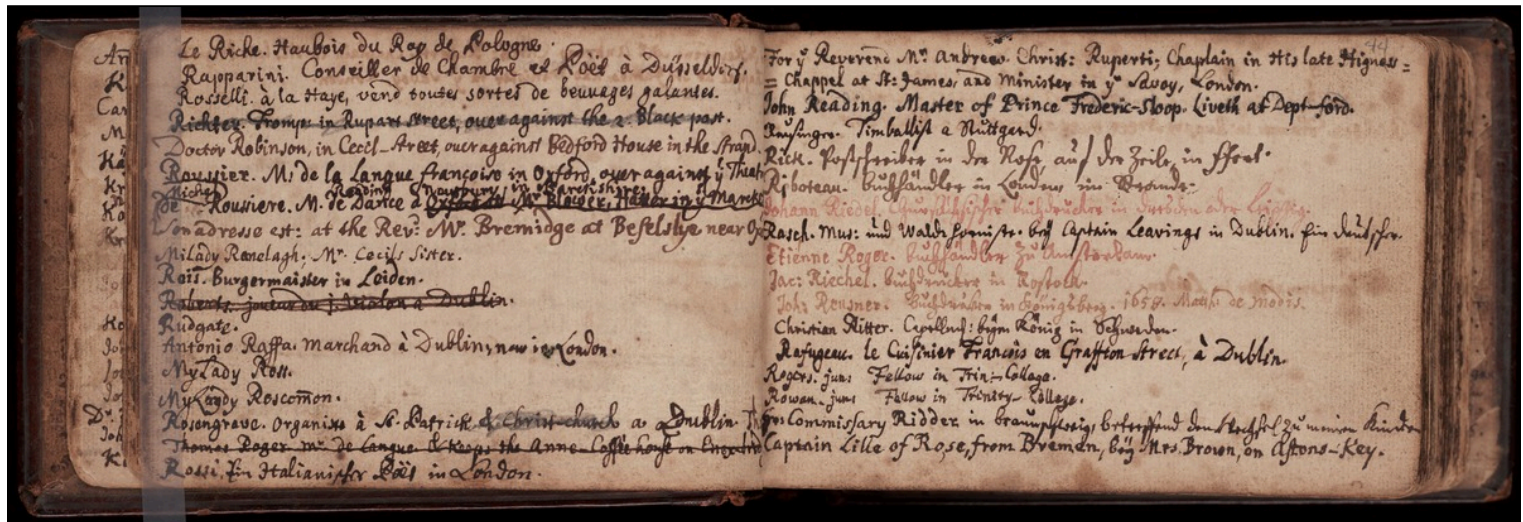 Le Riche. Haubois du Roy de Pologne.
Rapparini. Conseiller de Chambre et Poët à Düsseldorf.
Rosselli. à la Haye, vend toutes sortes de beuvages galantes.
Richter. Tromp: in Rupart street, over against the 2. Black post.
Doctor Robinson, in Cecil-street, over against Bedford House in the Strand.
Roussier. M: de la Langue françoise in Oxford, over against ye Theatr
Michel Reading Newbury in Barckshire
de Rousiere. M. de Dance à Oxford at Mr Blower, Hatter in ye Marcke
Son adresse est: at the Revd: Mr. Bremidge at Beselslye near Ox
Milady Ranelagh. Mr. Cecils Sister.
Rois. Burgermaister in Leiden.
Roberts. à Dublin.
Rudgate.
Antonio Raffa. marchand à Dublin, now in London.
My Lady Ross.
My Lady Roscomon.
Rosengrave. Organiste à St. Patrick & Christ-church a Dublin.
Thomas Roger. mr. de langue & keeps the Anne-Coffeehouse on
Rossi. Ein Italianischer Poët in London.
44
For ye Reverend Mr. Andreas Christ: Ruperti, Chaplain in His late Highness=
=Chappel at St: James, and Minister in ye Savoy, London.
John Reading. Master of Prince Frederic-Sloop. Liveth at Dept-ford.
Reusinger. Timballist a Stuttgard.
Rick. Postschreiber in der Rose, auf der Zeile, in ffort.
Riboteau. buchhändler in London im Strande.
Johann Riedel. buchdrucker in dresden oder Leipzig.
Rasch. Mus: und Waldhornist. bey Captain Leavings in Dublin. Ein deutscher.
Etienne Roger. buchhändler zu Amsterdam.
Jac: Riechel. buchdrucker in Rostock.
Joh: Reusner. buchdrucker in Königsberg. 1658. Matth: de modis.
Christian Ritter. Capellm: beym König in Schweden.
Rafugeau. le Cuisinier Francois en Graffton Street, à Dublin.
Rogers. juns Fellow in Trin:-Collage.
Rowan. juns Fellow in Trinity-College.
Commissary Ridder in braunschweig betreffend den Wechsel zu meinen Kindern
Captain Lille of Rose, from Bremen, bey Mrs. Brown, on Astons-Key.